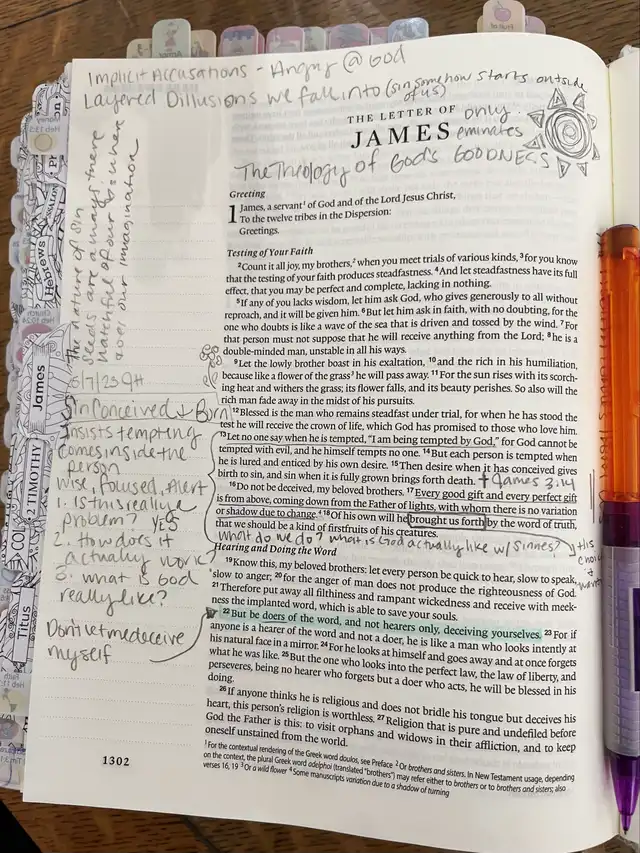 Implicit Accusations - Angry @ God
Layered Dillusions we fall into (sin somehow starts outside
of us)
THE LETTER OF
JAMES
only
eminates
The Theology of God's GOODNESS
The nature of sin
seeds are always there
hatchful of our
our imagination
Greeting
1 James, a servant¹ of God and of the Lord Jesus Christ,
To the twelve tribes in the Dispersion:
Greetings.
Testing of Your Faith
²Count it all joy, my brothers,² when you meet trials of various kinds, ³for you know
that the testing of your faith produces steadfastness. ⁴And let steadfastness have its full
effect, that you may be perfect and complete, lacking in nothing.
⁵If any of you lacks wisdom, let him ask God, who gives generously to all without
reproach, and it will be given him. ⁶But let him ask in faith, with no doubting, for the
one who doubts is like a wave of the sea that is driven and tossed by the wind. ⁷For
that person must not suppose that he will receive anything from the Lord; ⁸he is a
double-minded man, unstable in all his ways.
⁹Let the lowly brother boast in his exaltation, ¹⁰and the rich in his humiliation,
because like a flower of the grass³ he will pass away. ¹¹For the sun rises with its scorch-
ing heat and withers the grass; its flower falls, and its beauty perishes. So also will the
rich man fade away in the midst of his pursuits.
¹²Blessed is the man who remains steadfast under trial, for when he has stood the
test he will receive the crown of life, which God has promised to those who love him.
¹³Let no one say when he is tempted, "I am being tempted by God," for God cannot be
tempted with evil, and he himself tempts no one. ¹⁴But each person is tempted when
he is lured and enticed by his own desire. ¹⁵Then desire when it has conceived gives
birth to sin, and sin when it is fully grown brings forth death.
James 3:14
¹⁶Do not be deceived, my beloved brothers. ¹⁷Every good gift and every perfect gift
is from above, coming down from the Father of lights, with whom there is no variation
or shadow due to change.⁴ ¹⁸Of his own will he brought us forth by the word of truth,
that we should be a kind of firstfruits of his creatures.
What do we do? What is God actually like w/ Sinnes?
His
choice
Hearing and Doing the Word
¹⁹Know this, my beloved brothers: let every person be quick to hear, slow to speak,
slow to anger; ²⁰for the anger of man does not produce the righteousness of God.
²¹Therefore put away all filthiness and rampant wickedness and receive with meek-
ness the implanted word, which is able to save your souls.
²²But be doers of the word, and not hearers only, deceiving yourselves. ²³For if
anyone is a hearer of the word and not a doer, he is like a man who looks intently at
his natural face in a mirror. ²⁴For he looks at himself and goes away and at once forgets
what he was like. ²⁵But the one who looks into the perfect law, the law of liberty, and
perseveres, being no hearer who forgets but a doer who acts, he will be blessed in his
doing.
²⁶If anyone thinks he is religious and does not bridle his tongue but deceives his
heart, this person's religion is worthless. ²⁷Religion that is pure and undefiled before
God the Father is this: to visit orphans and widows in their affliction, and to keep
oneself unstained from the world.
¹ For the contextual rendering of the Greek word doulos, see Preface ² Or brothers and sisters. In New Testament usage, depending
on the context, the plural Greek word adelphoi (translated "brothers") may refer either to brothers or to brothers and sisters; also
verses 16, 19 ³ Or a wild flower ⁴ Some manuscripts variation due to a shadow of turning
Conceived + Born
Insists tempting
comes inside the
person
Wise, Focused, Alert
1. Is this really
problem? YES
2. How does it
actually work?
3. What is God
really like?
Don't let me deceive
myself
1302
Hebrews
James
2 TIMOTHY
Titus